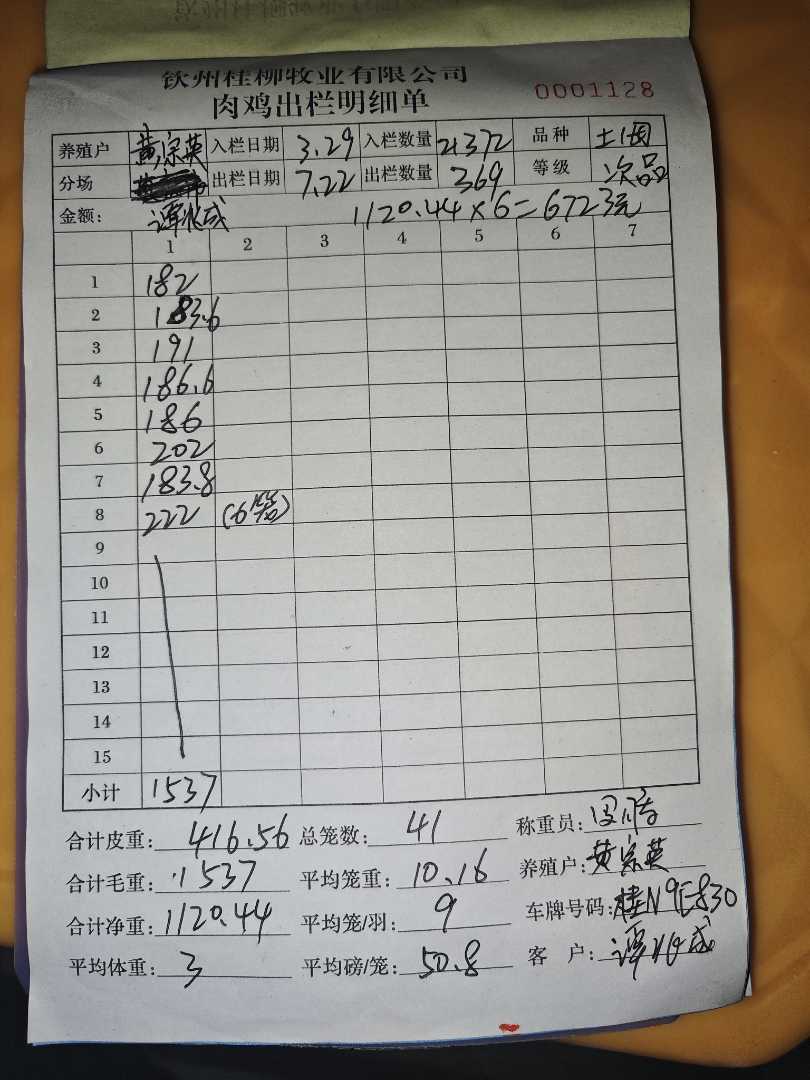 钦州桂柳牧业有限公司
肉鸡出栏明细单 0001128
养殖户 黄宗英 入栏日期 3.29 入栏数量 21372 品种 土1
分场 出栏日期 7.22 出栏数量 369 等级 次品
金额: 1120.44×6=6723元
1 2 3 4 5 6 7
1 182
2 183.6
3 191
4 186.6
5 186
6 202
7 183.8
8 222 (6笼)
9
10
11
12
13
14
15
小计 1537
合计皮重: 416.56 总笼数: 41 称重员:
合计毛重: 1537 平均笼重: 10.16 养殖户: 黄宗英
合计净重: 1120.44 平均笼/羽: 9 车牌号码: 桂N9E830
平均体重: 3 平均磅/笼: 50.8 客户: